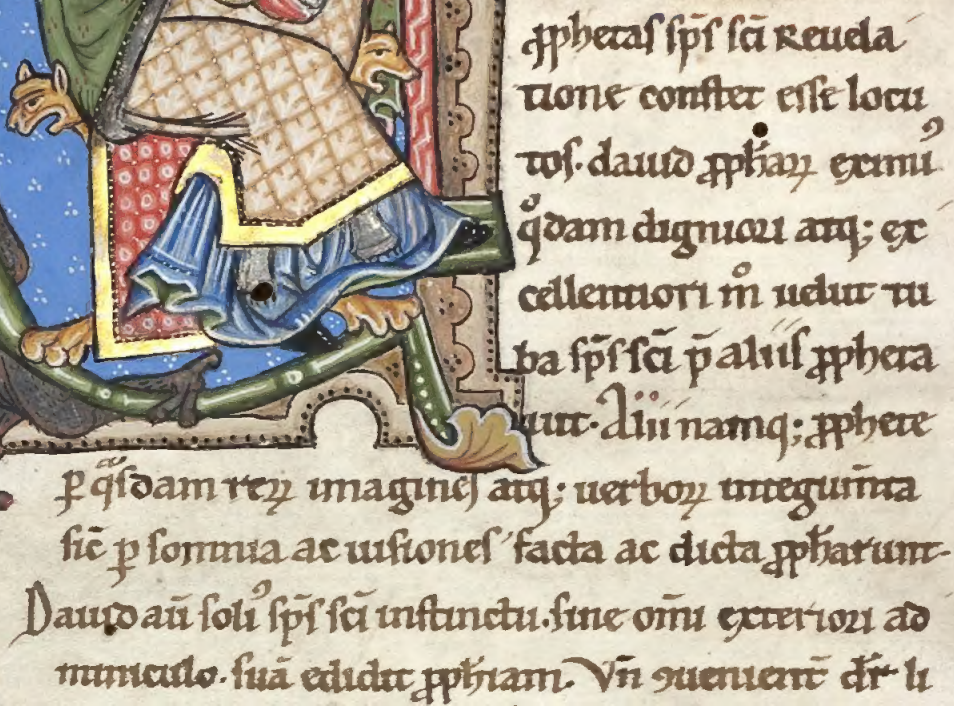 ꝓphetas sp̄s sc̄i Reuela
tione constet esse locu
tos. dauid ꝓph̄aꝝ eximiꝰ
qͦdam digniori atq; ex
cellentiori m̊ uelut tu
ba sp̄s sc̄i p̄ aliis ꝓpheta
uit. Alii namq; ꝓphete
ꝑ qᷓsdam reꝝ imagines atq; uerboꝝ integum̄ta
sic̄ ꝑ somnia ac uisiones facta ac dicta ꝓph̄arunt.
Dauid aū soliꝰ sp̄s sc̄i instinctu. sine om̄i exteriori ad
miniculo. suā edidit ꝓph̄iam. Vn̄ ꝯuenient̄ dr̄ li